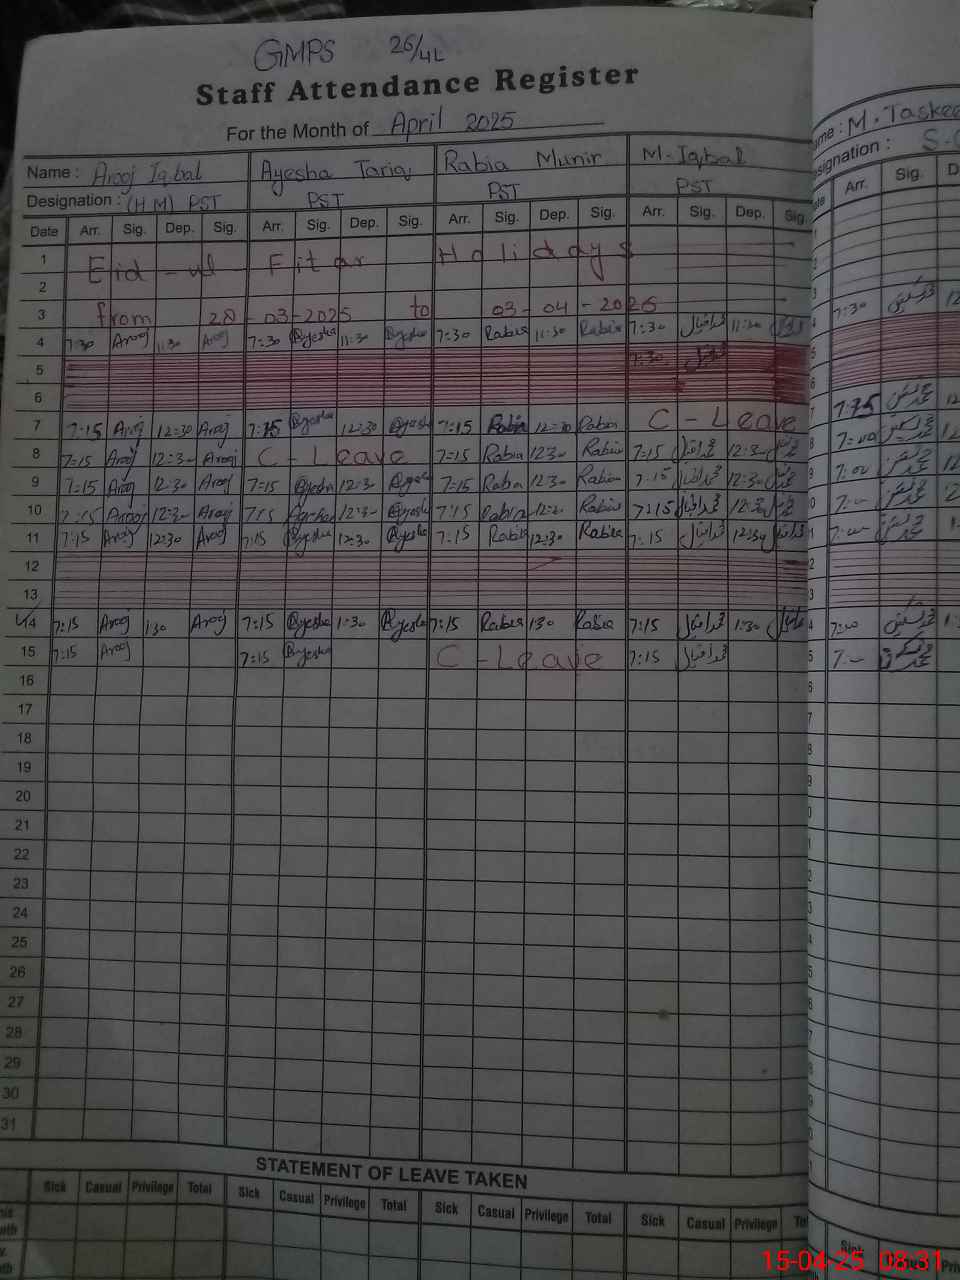 GMPS 26/4L
Staff Attendance Register
For the Month of April 2025
Name : Arooj Iqbal Ayesha Tariq Rabia Munir M. Iqbal
Designation : (HM) PST PST PST PST
Date Arr. Sig. Dep. Sig. Arr. Sig. Dep. Sig. Arr. Sig. Dep. Sig. Arr. Sig. Dep. Sig.
1 Eid - ul - Fitar Holidays
2
3 from 28 - 03 - 2025 to 03 - 04 - 2025
4 7:30 Arooj 11:30 Arooj 7:30 Ayesha 11:30 Ayesha 7:30 Rabia 11:30 Rabia 7:30 محمد اقبال 11:30
5 7:30
6
7 7:15 Arooj 12:30 Arooj 7:15 Ayesha 12:30 Ayesha 7:15 Rabia 12:30 Rabia C - Leave
8 7:15 Arooj 12:30 Arooj C - Leave 7:15 Rabia 12:30 Rabia 7:15 محمد اقبال 12:30
9 7:15 Arooj 12:30 Arooj 7:15 Ayesha 12:30 Ayesha 7:15 Rabia 12:30 Rabia 7:15 محمد اقبال 12:30
10 7:15 Arooj 12:30 Arooj 7:15 Ayesha 12:30 Ayesha 7:15 Rabia 12:30 Rabia 7:15 محمد اقبال 12:30
11 7:15 Arooj 12:30 Arooj 7:15 Ayesha 12:30 Ayesha 7:15 Rabia 12:30 Rabia 7:15 محمد اقبال 12:30
12
13
14 7:15 Arooj 1:30 Arooj 7:15 Ayesha 1:30 Ayesha 7:15 Rabia 1:30 Rabia 7:15 محمد اقبال 1:30
15 7:15 Arooj 7:15 Ayesha C - Leave 7:15 محمد اقبال
16
17
18
19
20
21
22
23
24
25
26
27
28
29
30
31
STATEMENT OF LEAVE TAKEN
Sick Casual Privilege Total Sick Casual Privilege Total Sick Casual Privilege Total Sick Casual Privilege
M. Taskee
Designation : S.
Arr. Sig.
7:30
7:15
7:00
7:00
7:00
7:00
7:00
7:00
Sick
15-04-25 08:31